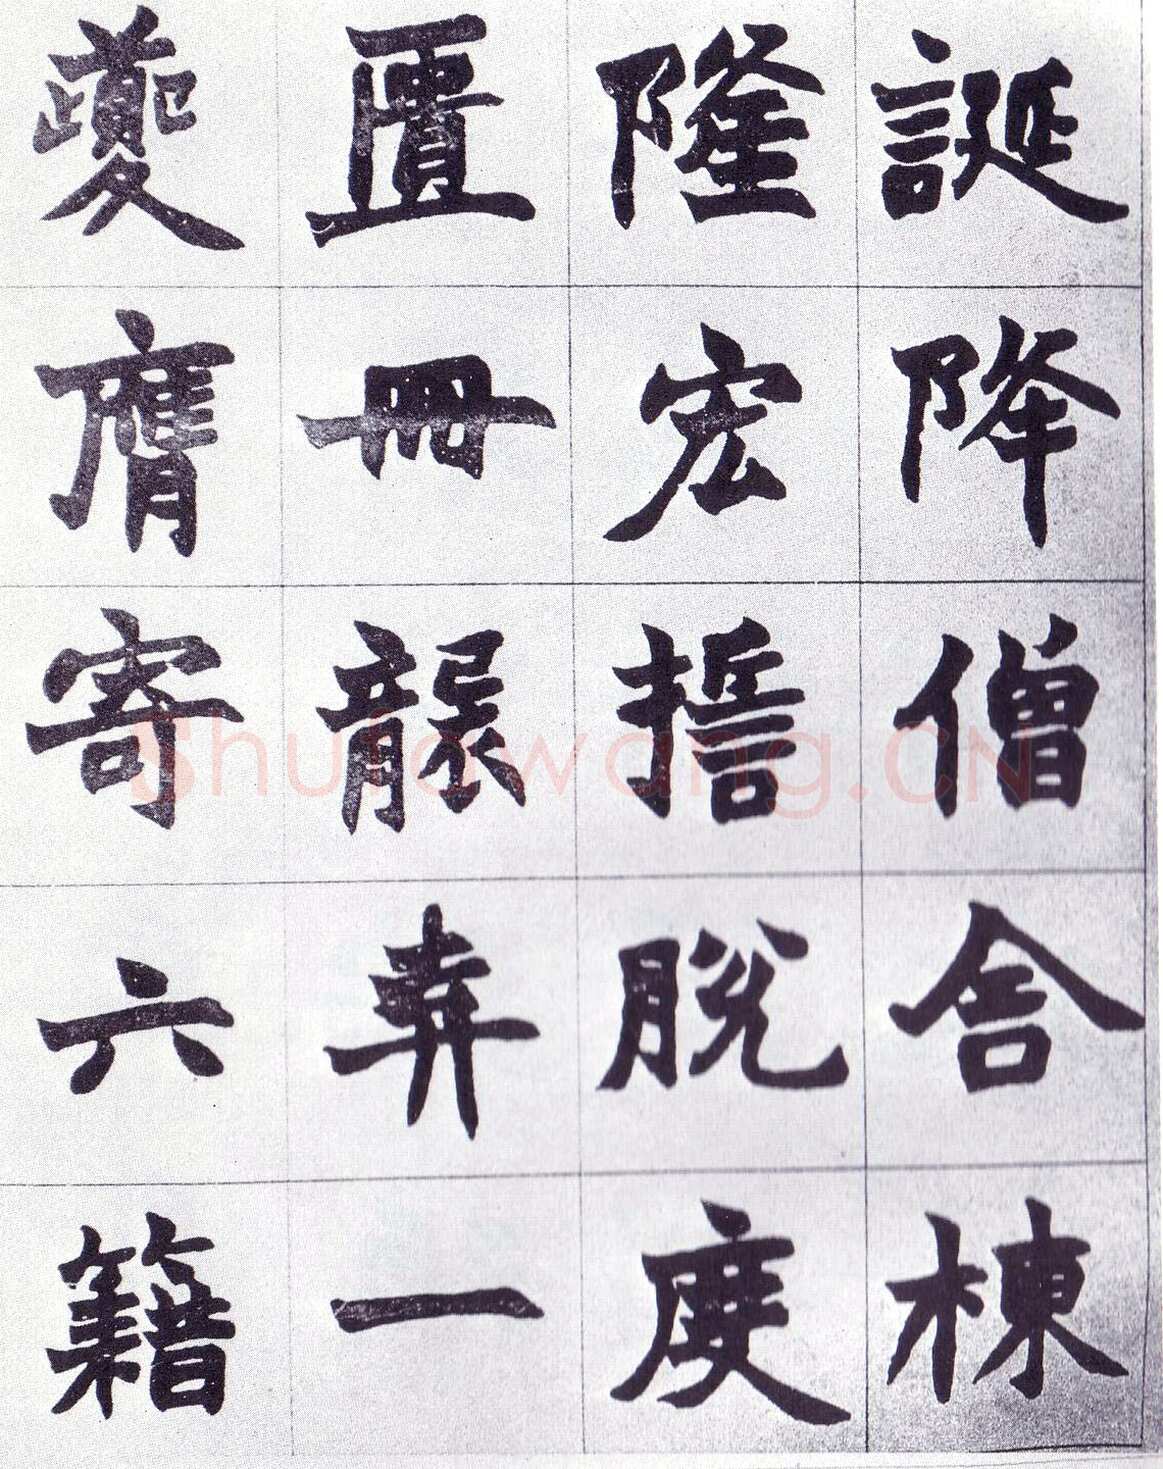 誕降僧舍棟
隆宏脫度
匱冊一
夔膺寄六籍
Shufawang.CN